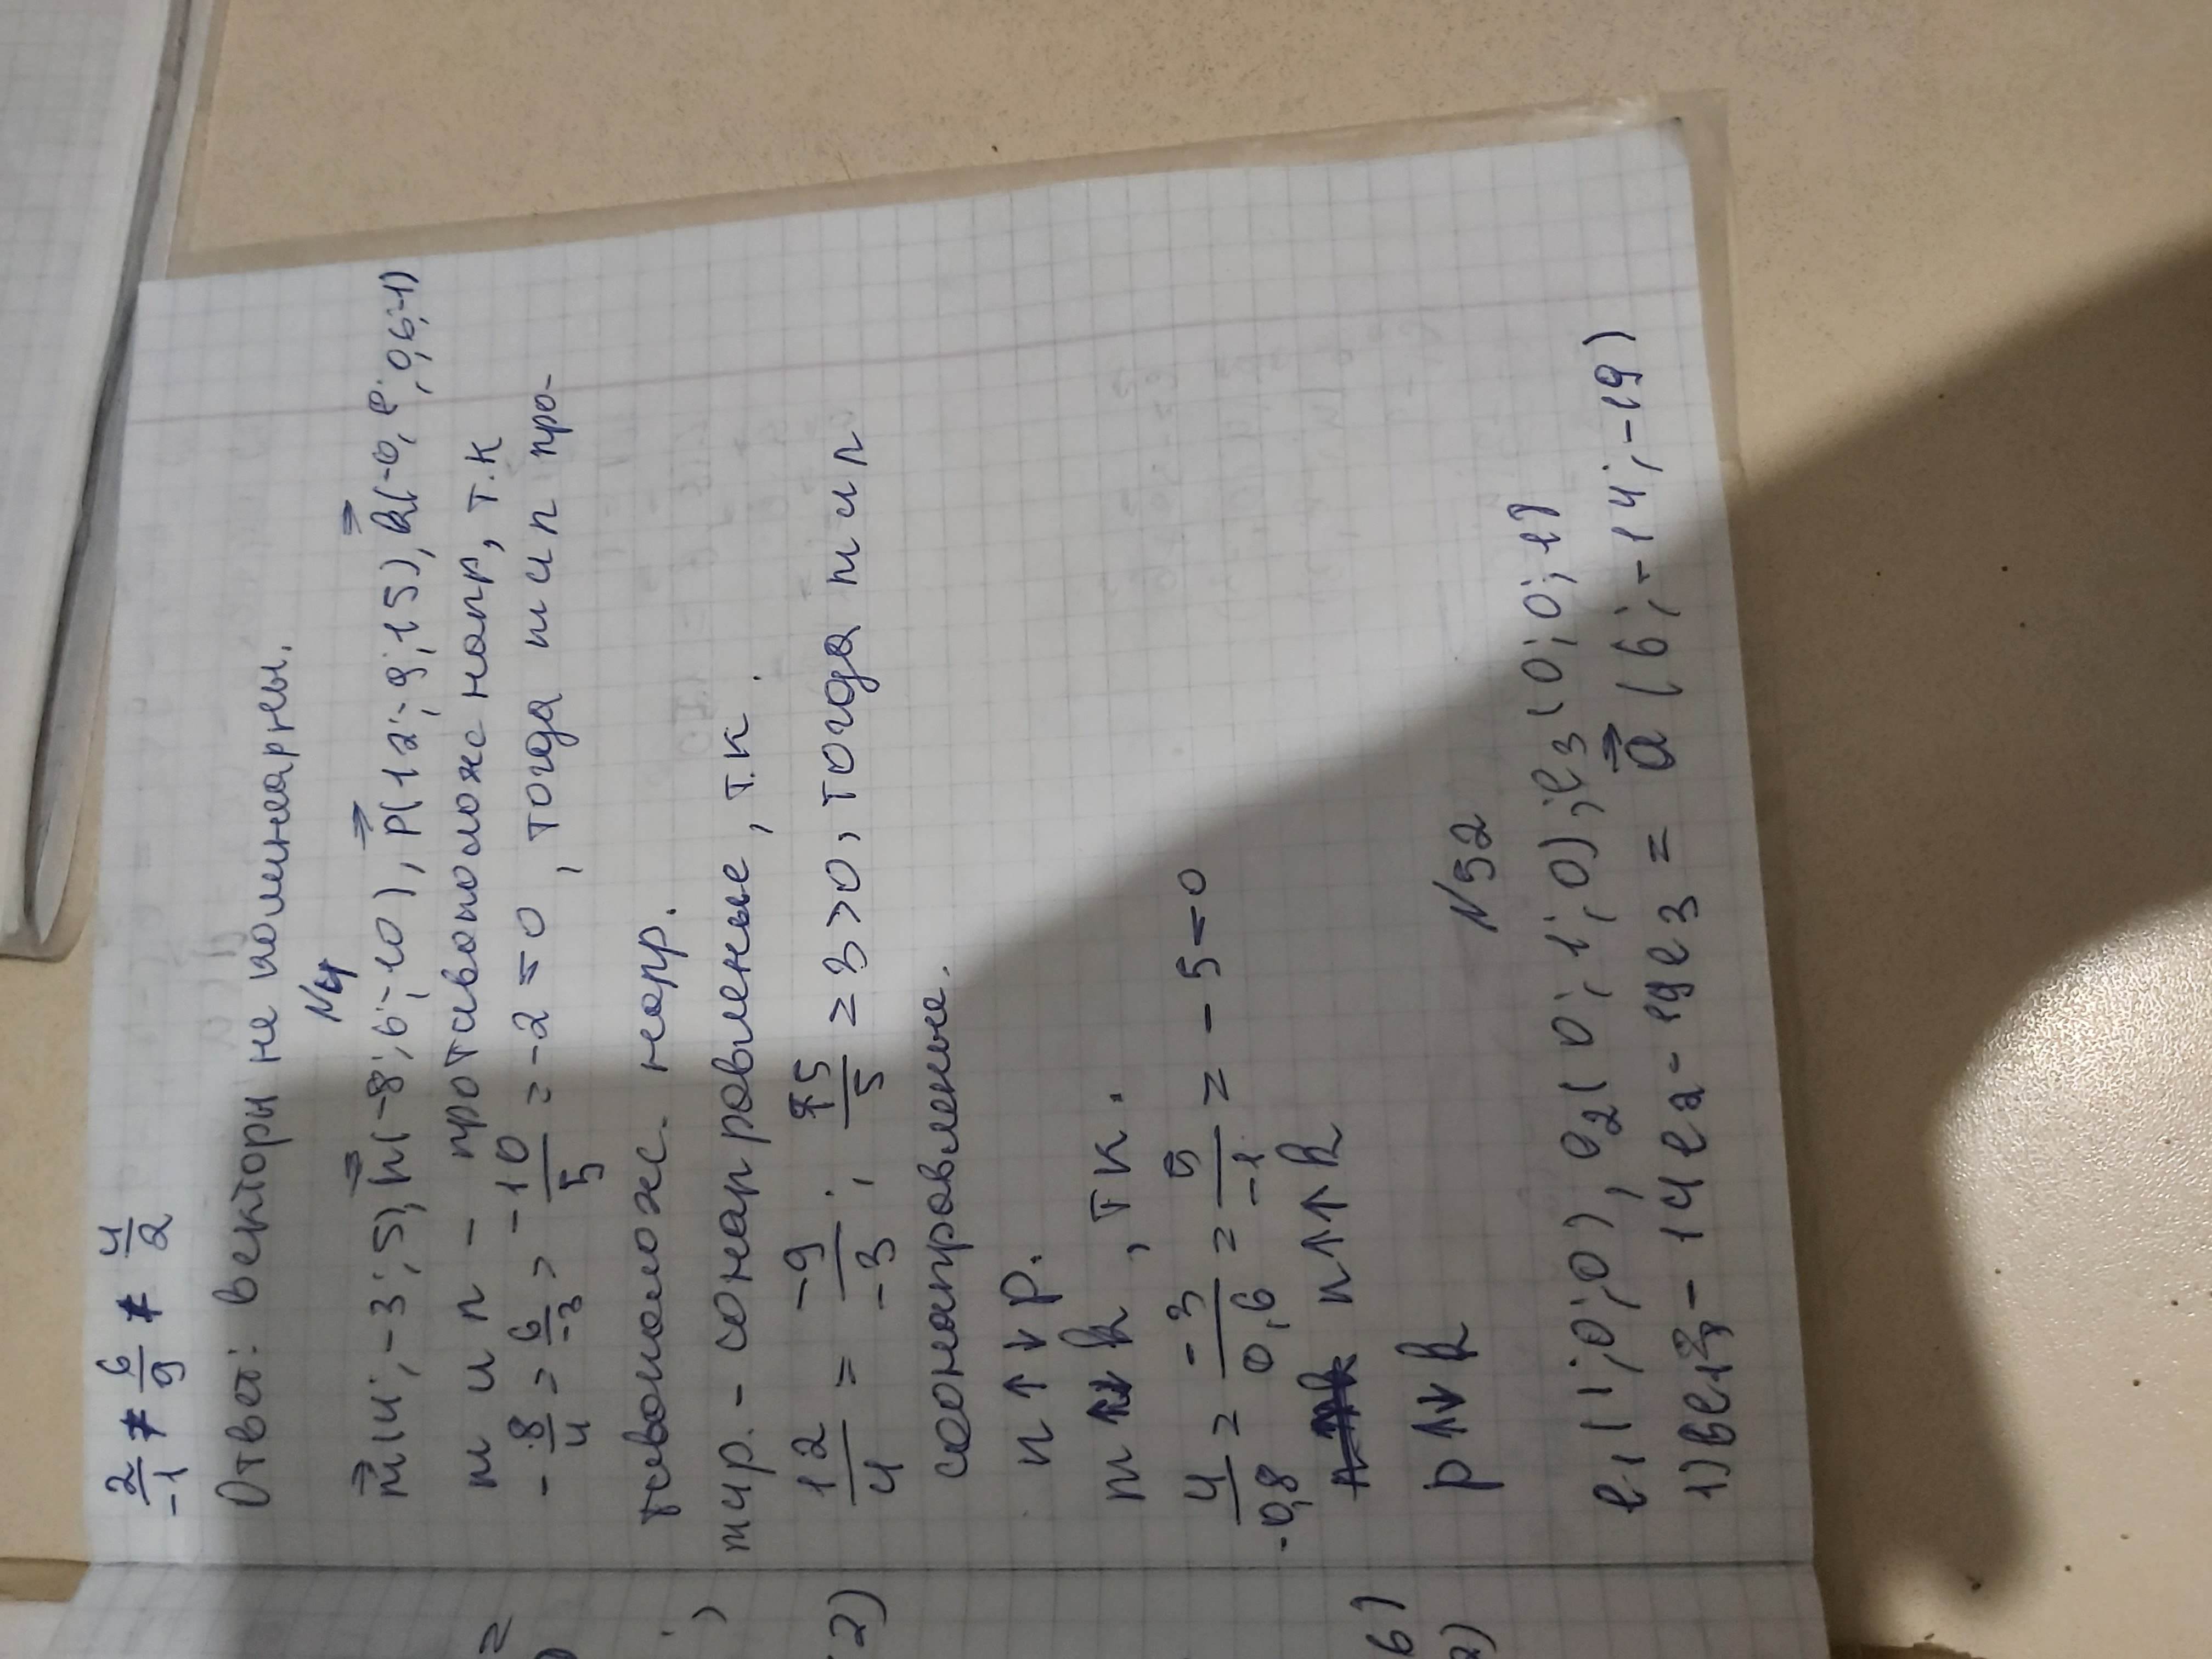 2/-1 ≠ 6/9 ≠ 4/2
Ответ: векторы не коллинеарны.
N4
m(4;-3;5), n(-8;6;-10), p(12;-9;15), k(-0,8;0,6;-1)
m и n - противополож напр, т.к
-8/4 = 6/-3 = -10/5 = -2 = 0, тогда m и n про-
тивополож. напр.
m и p. - сонаправленые, т.к.
12/4 = -9/-3; 15/5 = 3 > 0, тогда m и n
сонаправлены.
n ↑↓ p.
m ↑↓ k, т.к.
4/-0,8 = -3/0,6 = 5/-1 = -5 = 0
n ↑↑ k
p ↑↓ k
N52
e1(1;0;0), e2(0;1;0); e3(0;0;1)
1) - 14e2 - 19e3 = a(6;-14;-19)
=
)
2)
б)
2)